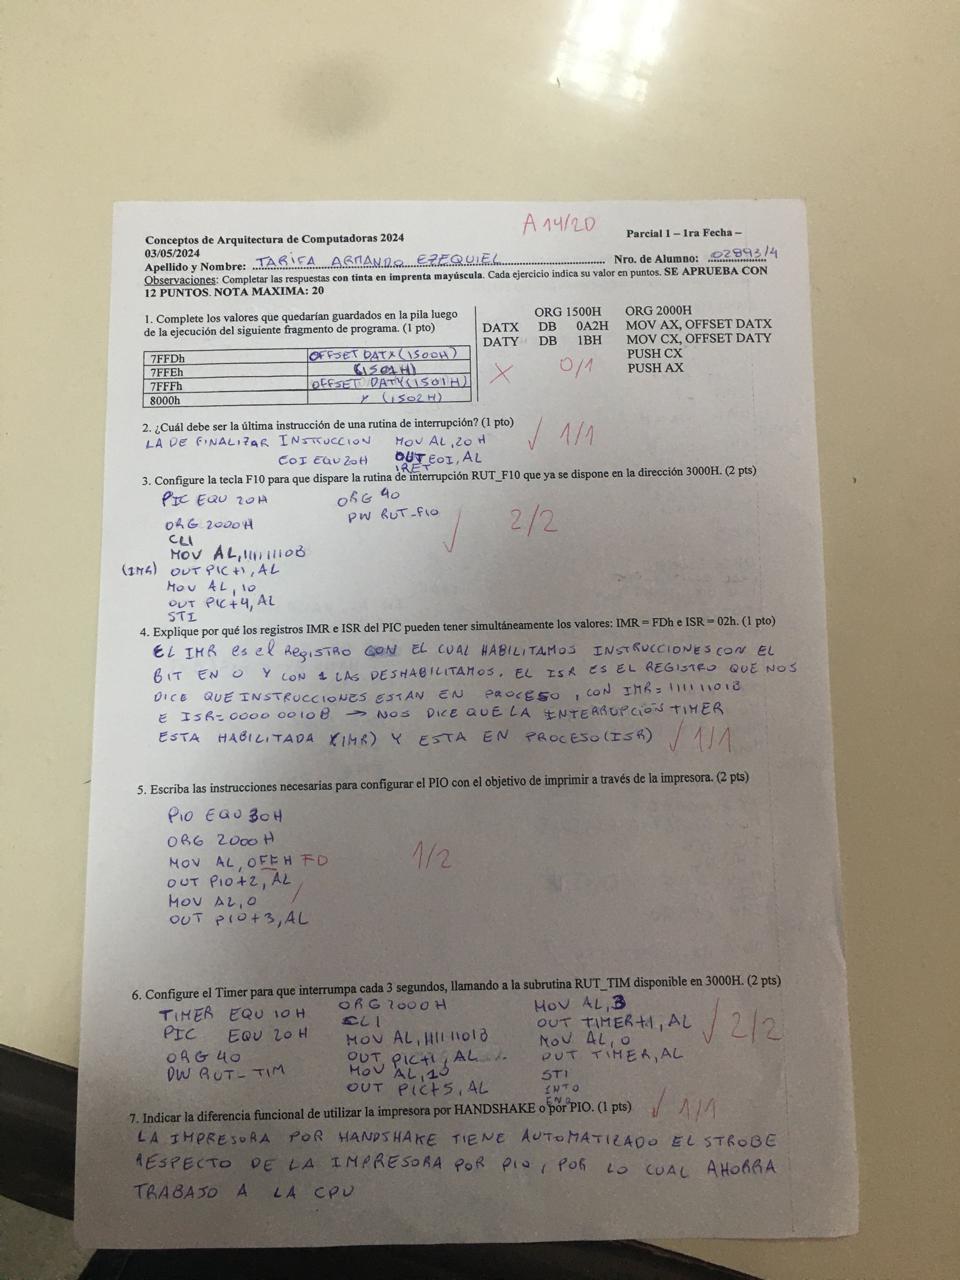 A 14/20
Conceptos de Arquitectura de Computadoras 2024 Parcial 1 – 1ra Fecha –
03/05/2024
Apellido y Nombre: TARIFA ARMANDO EZEQUIEL Nro. de Alumno: 02893/4
Observaciones: Completar las respuestas con tinta en imprenta mayúscula. Cada ejercicio indica su valor en puntos. SE APRUEBA CON
12 PUNTOS. NOTA MAXIMA: 20
1. Complete los valores que quedarían guardados en la pila luego
de la ejecución del siguiente fragmento de programa. (1 pto)
7FFDh OFFSET DATX (1500H)
7FFEh (1501H)
7FFFh OFFSET DATY (1501H)
8000h Y (1502H)
ORG 1500H ORG 2000H
DATX DB 0A2H MOV AX, OFFSET DATX
DATY DB 1BH MOV CX, OFFSET DATY
PUSH CX
PUSH AX
X 0/1
2. ¿Cuál debe ser la última instrucción de una rutina de interrupción? (1 pto)
LA DE FINALIZAR INSTRUCCION MOV AL, 20H
EOI EQU 20H OUT EOI, AL
IRET
✓ 1/1
3. Configure la tecla F10 para que dispare la rutina de interrupción RUT_F10 que ya se dispone en la dirección 3000H. (2 pts)
PIC EQU 20H ORG 40
ORG 2000H DW RUT_F10
CLI
MOV AL, 11111110B
(IMR) OUT PIC+1, AL
MOV AL, 10
OUT PIC+4, AL
STI
✓ 2/2
4. Explique por qué los registros IMR e ISR del PIC pueden tener simultáneamente los valores: IMR = FDh e ISR = 02h. (1 pto)
EL IMR es el Registro CON EL CUAL HABILITAMOS INSTRUCCIONES CON EL
BIT EN 0 Y CON 1 LAS DESHABILITAMOS. EL ISR ES EL REGISTRO QUE NOS
DICE QUE INSTRUCCIONES ESTAN EN PROCESO, CON IMR=11111101B
E ISR=00000010B → NOS DICE QUE LA INTERRUPCIÓN TIMER
ESTA HABILITADA (IMR) Y ESTA EN PROCESO (ISR) ✓ 1/1
5. Escriba las instrucciones necesarias para configurar el PIO con el objetivo de imprimir a través de la impresora. (2 pts)
PIO EQU 30H
ORG 2000H
MOV AL, OFEH FD
OUT PIO+2, AL
MOV AL, 0
OUT PIO+3, AL
1/2
6. Configure el Timer para que interrumpa cada 3 segundos, llamando a la subrutina RUT_TIM disponible en 3000H. (2 pts)
TIMER EQU 10H
PIC EQU 20H
ORG 40
DW RUT_TIM
ORG 2000H
CLI
MOV AL, 11111101B
OUT PIC+1, AL
MOV AL, 10
OUT PIC+5, AL
MOV AL, 3
OUT TIMER+1, AL
MOV AL, 0
OUT TIMER, AL
STI
INT 0
END
✓ 2/2
7. Indicar la diferencia funcional de utilizar la impresora por HANDSHAKE o por PIO. (1 pts) ✓ 1/1
LA IMPRESORA POR HANDSHAKE TIENE AUTOMATIZADO EL STROBE
RESPECTO DE LA IMPRESORA POR PIO, POR LO CUAL AHORRA
TRABAJO A LA CPU